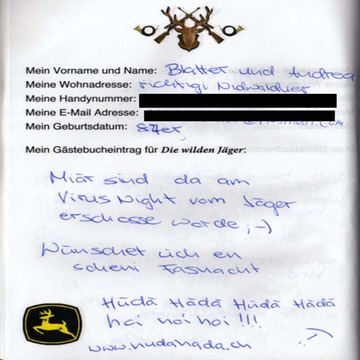 Mein Vorname und Name: Blätter und Andrea
Meine Wohnadresse: richtigi Nidwaldner
Meine Handynummer:
Meine E-Mail Adresse:
Mein Geburtsdatum: 87er
Mein Gästebucheintrag für Die wilden Jäger:
Miär sind da am
Virus Night vom Jäger
erschosse worde ;-)
Wünschet üch en
scheni Fasnacht
Hüdä Hädä Hüdä Hädä
hoi hoi hoi !!!
www.hudahada.ch